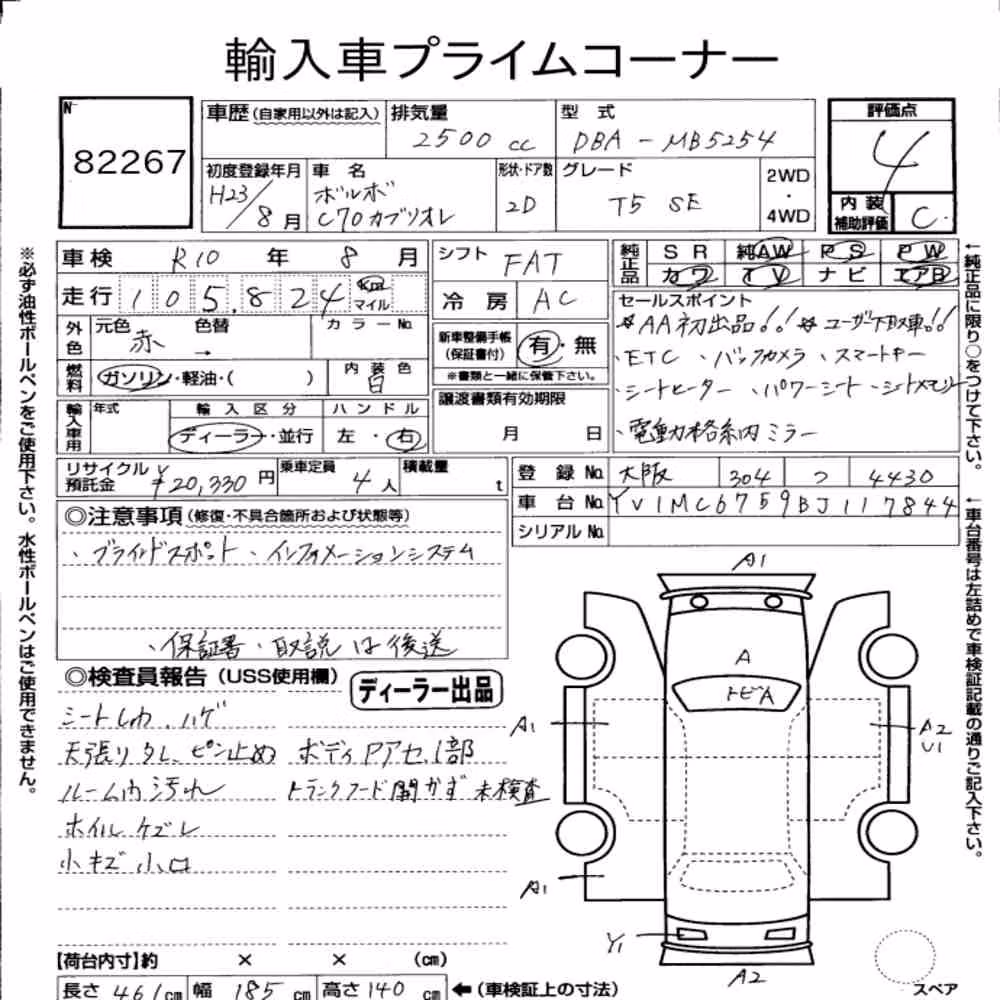 輸入車プライムコーナー
No
82267
車歴 (自家用以外は記入) 排気量 2500 cc 型式 DBA-MB5254
初度登録年月 H23/8月 車名 ボルボ C70カブリオレ 形状・ドア数 2D グレード T5 SE 2WD・4WD
評価点 4
内装補助評価 C
車検 R10 年 8 月
走行 105,824 Km マイル
シフト FAT
冷房 AC
純正品 SR 純AW PS PW
カワ TV ナビ エアB
外色 元色 赤 色替 → カラーNo.
燃料 ガソリン・軽油・( ) 内装色 白
新車整備手帳 (保証書付) 有・無
※書類と一緒に保管下さい。
輸入車用 年式 輸入区分 ディーラー・並行 ハンドル 左・右
譲渡書類有効期限 月 日
セールスポイント
☆AA初出品!! ☆ユーザー下取車!!
・ETC、バックカメラ、スマートキー
・シートヒーター、パワーシート、シートメモリ
・電動格納ミラー
リサイクル預託金 ¥20,330円 乗車定員 4人 積載量 t
登録No. 大阪 304 つ 4430
車台No. YV1MC6759BJ117844
シリアルNo.
◎注意事項 (修復・不具合箇所および状態等)
、ブラインドスポット、インフォメーションシステム
、保証書、取説は後送
◎検査員報告 (USS使用欄) ディーラー出品
シートしわ、ハゲ
天張りタレ、ピン止め ボディPアセ、1部
ルーム内汚れ トランクフード開かず 未検査
ホイルケズレ
小キズ小凹
【荷台内寸】約 × × (cm)
長さ 461cm 幅 185cm 高さ 140cm ←(車検証上の寸法)
A1
A
トビA
A1
A2
U1
A1
Y1
A2
スペア
※必ず油性ボールペンをご使用下さい。水性ボールペンはご使用できません。
←純正品に限り○をつけて下さい。
←車台番号は左詰めで車検証記載の通りご記入下さい。